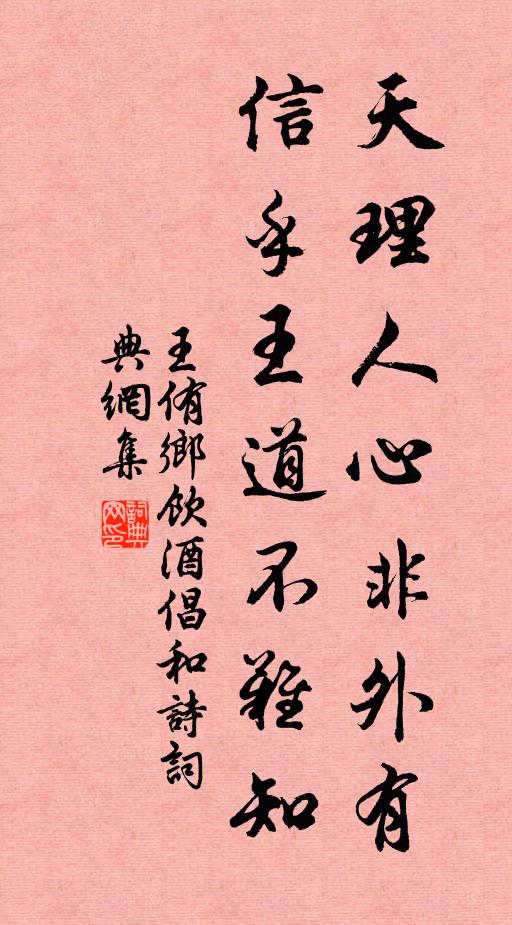 天理人心非外有
信乎王道不難知
王侑鄉飲酒倡和詩詞
典網集
詞典
网印